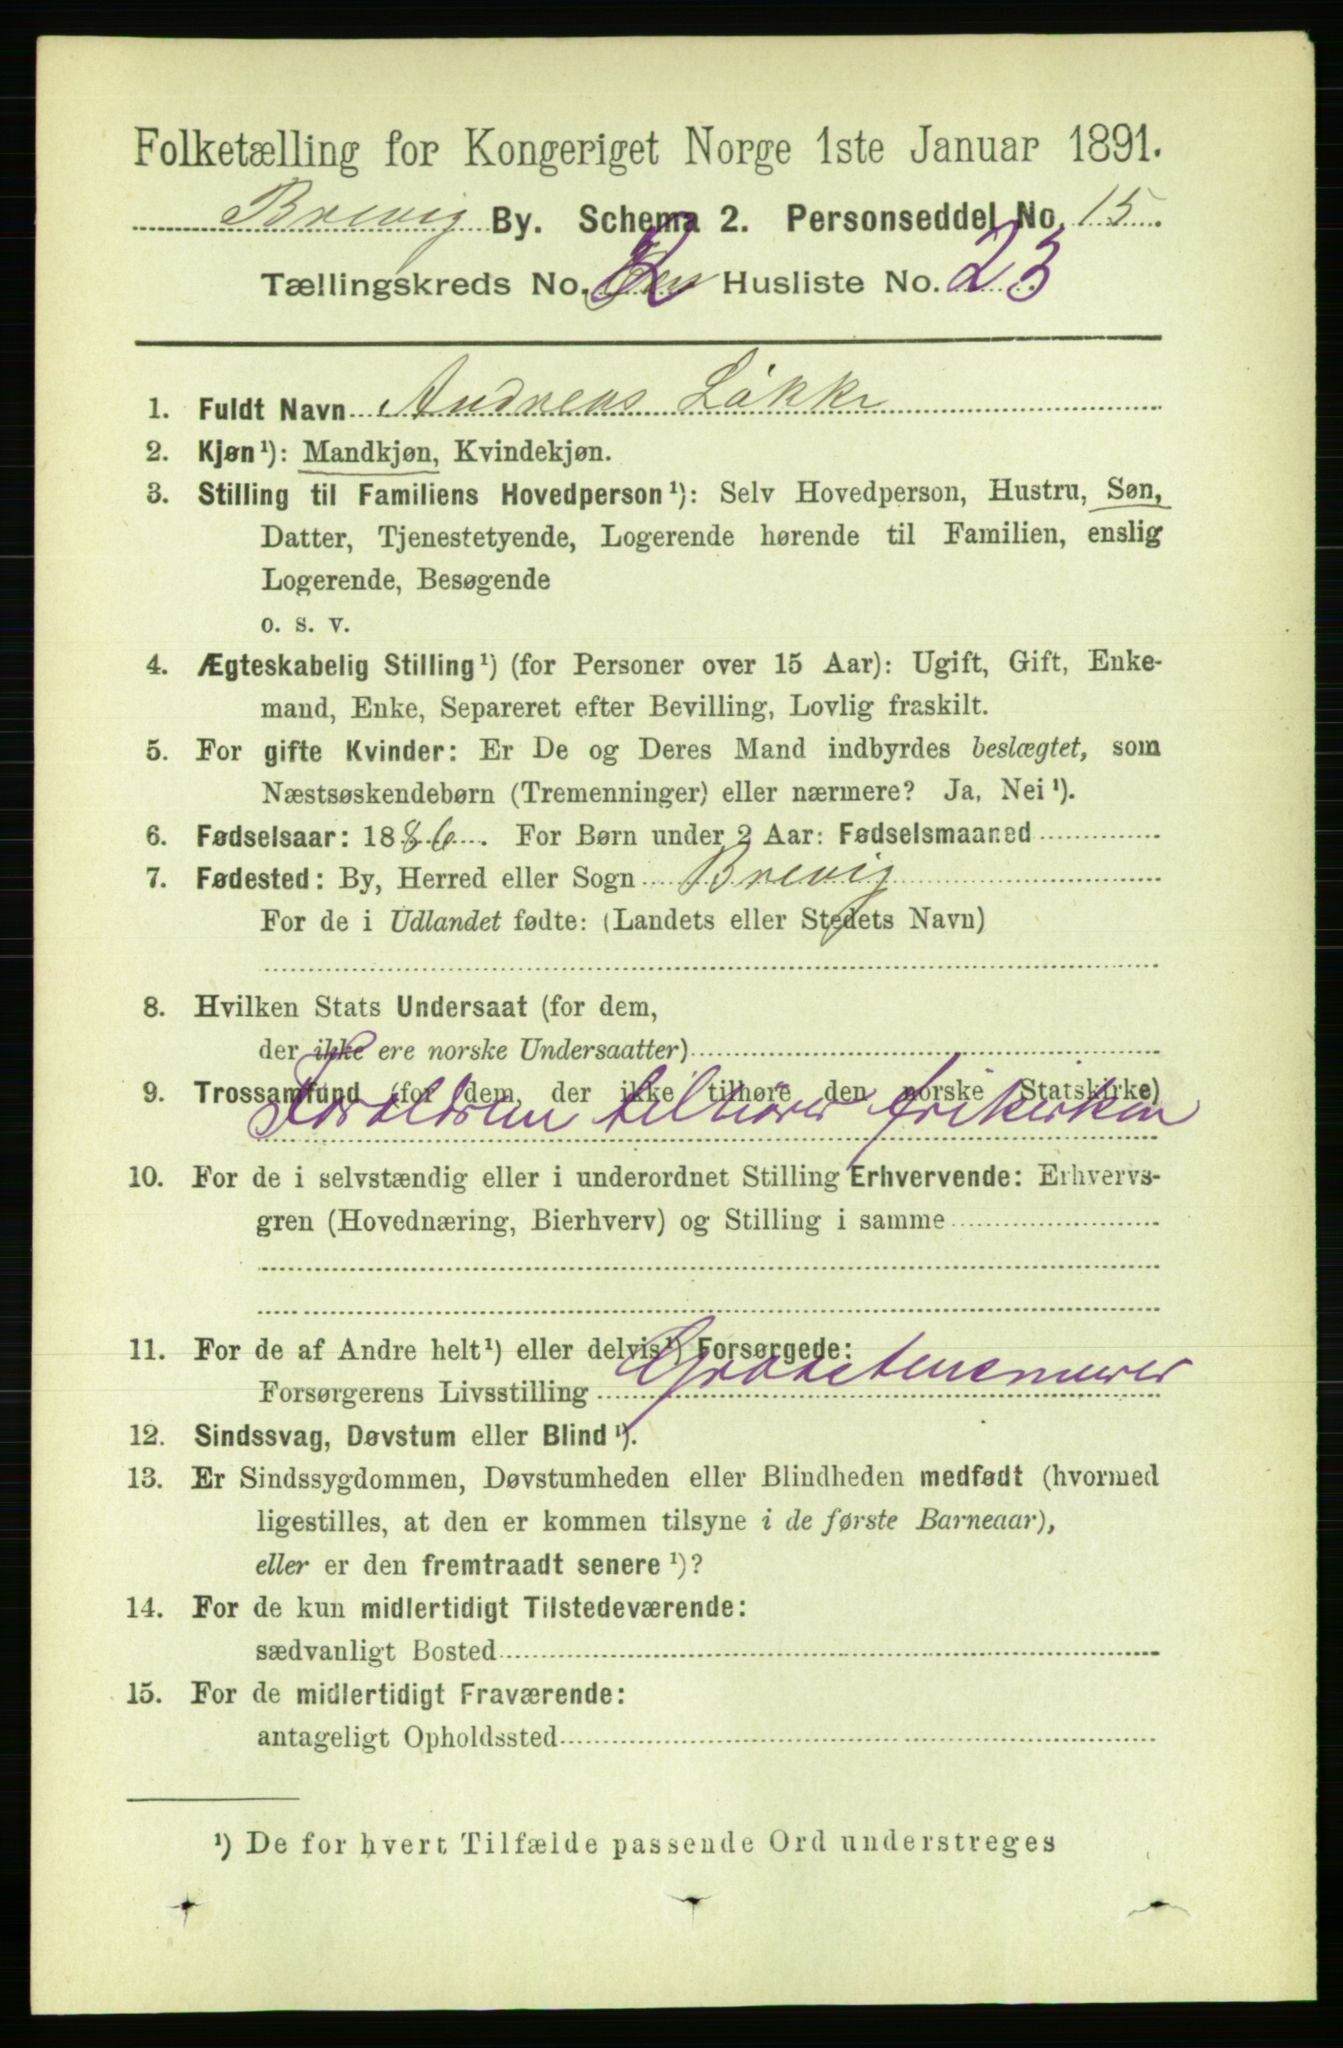 Folketælling for Kongeriget Norge 1ste Januar 1891.
Brevig By. Schema 2. Personseddel No. 15.
Tællingskreds No. 2 Husliste No. 23
1. Fuldt Navn Andreas Løkke
2. Kjøn¹): Mandkjøn, Kvindekjøn.
3. Stilling til Familiens Hovedperson¹): Selv Hovedperson, Hustru, Søn,
Datter, Tjenestetyende, Logerende hørende til Familien, enslig
Logerende, Besøgende
o. s. v.
4. Ægteskabelig Stilling¹) (for Personer over 15 Aar): Ugift, Gift, Enke-
mand, Enke, Separeret efter Bevilling, Lovlig fraskilt.
5. For gifte Kvinder: Er De og Deres Mand indbyrdes beslægtet, som
Næstsøskendebørn (Tremenninger) eller nærmere? Ja, Nei¹).
6. Fødselsaar: 1886. For Børn under 2 Aar: Fødselsmaaned
7. Fødested: By, Herred eller Sogn Brevig
For de i Udlandet fødte: (Landets eller Stedets Navn)
8. Hvilken Stats Undersaat (for dem,
der ikke ere norske Undersaatter)
9. Trossamfund (for dem, der ikke tilhøre den norske Statskirke)
Foraldrene tilhører frikirken
10. For de i selvstændig eller i underordnet Stilling Erhvervende: Erhvervs-
gren (Hovednæring, Bierhverv) og Stilling i samme
11. For de af Andre helt¹) eller delvis¹) Forsørgede:
Forsørgerens Livsstilling Graastensmurer
12. Sindssvag, Døvstum eller Blind¹).
13. Er Sindssygdommen, Døvstumheden eller Blindheden medfødt (hvormed
ligestilles, at den er kommen tilsyne i de første Barneaar),
eller er den fremtraadt senere¹)?
14. For de kun midlertidigt Tilstedeværende:
sædvanligt Bosted
15. For de midlertidigt Fraværende:
antageligt Opholdssted
¹) De for hvert Tilfælde passende Ord understreges